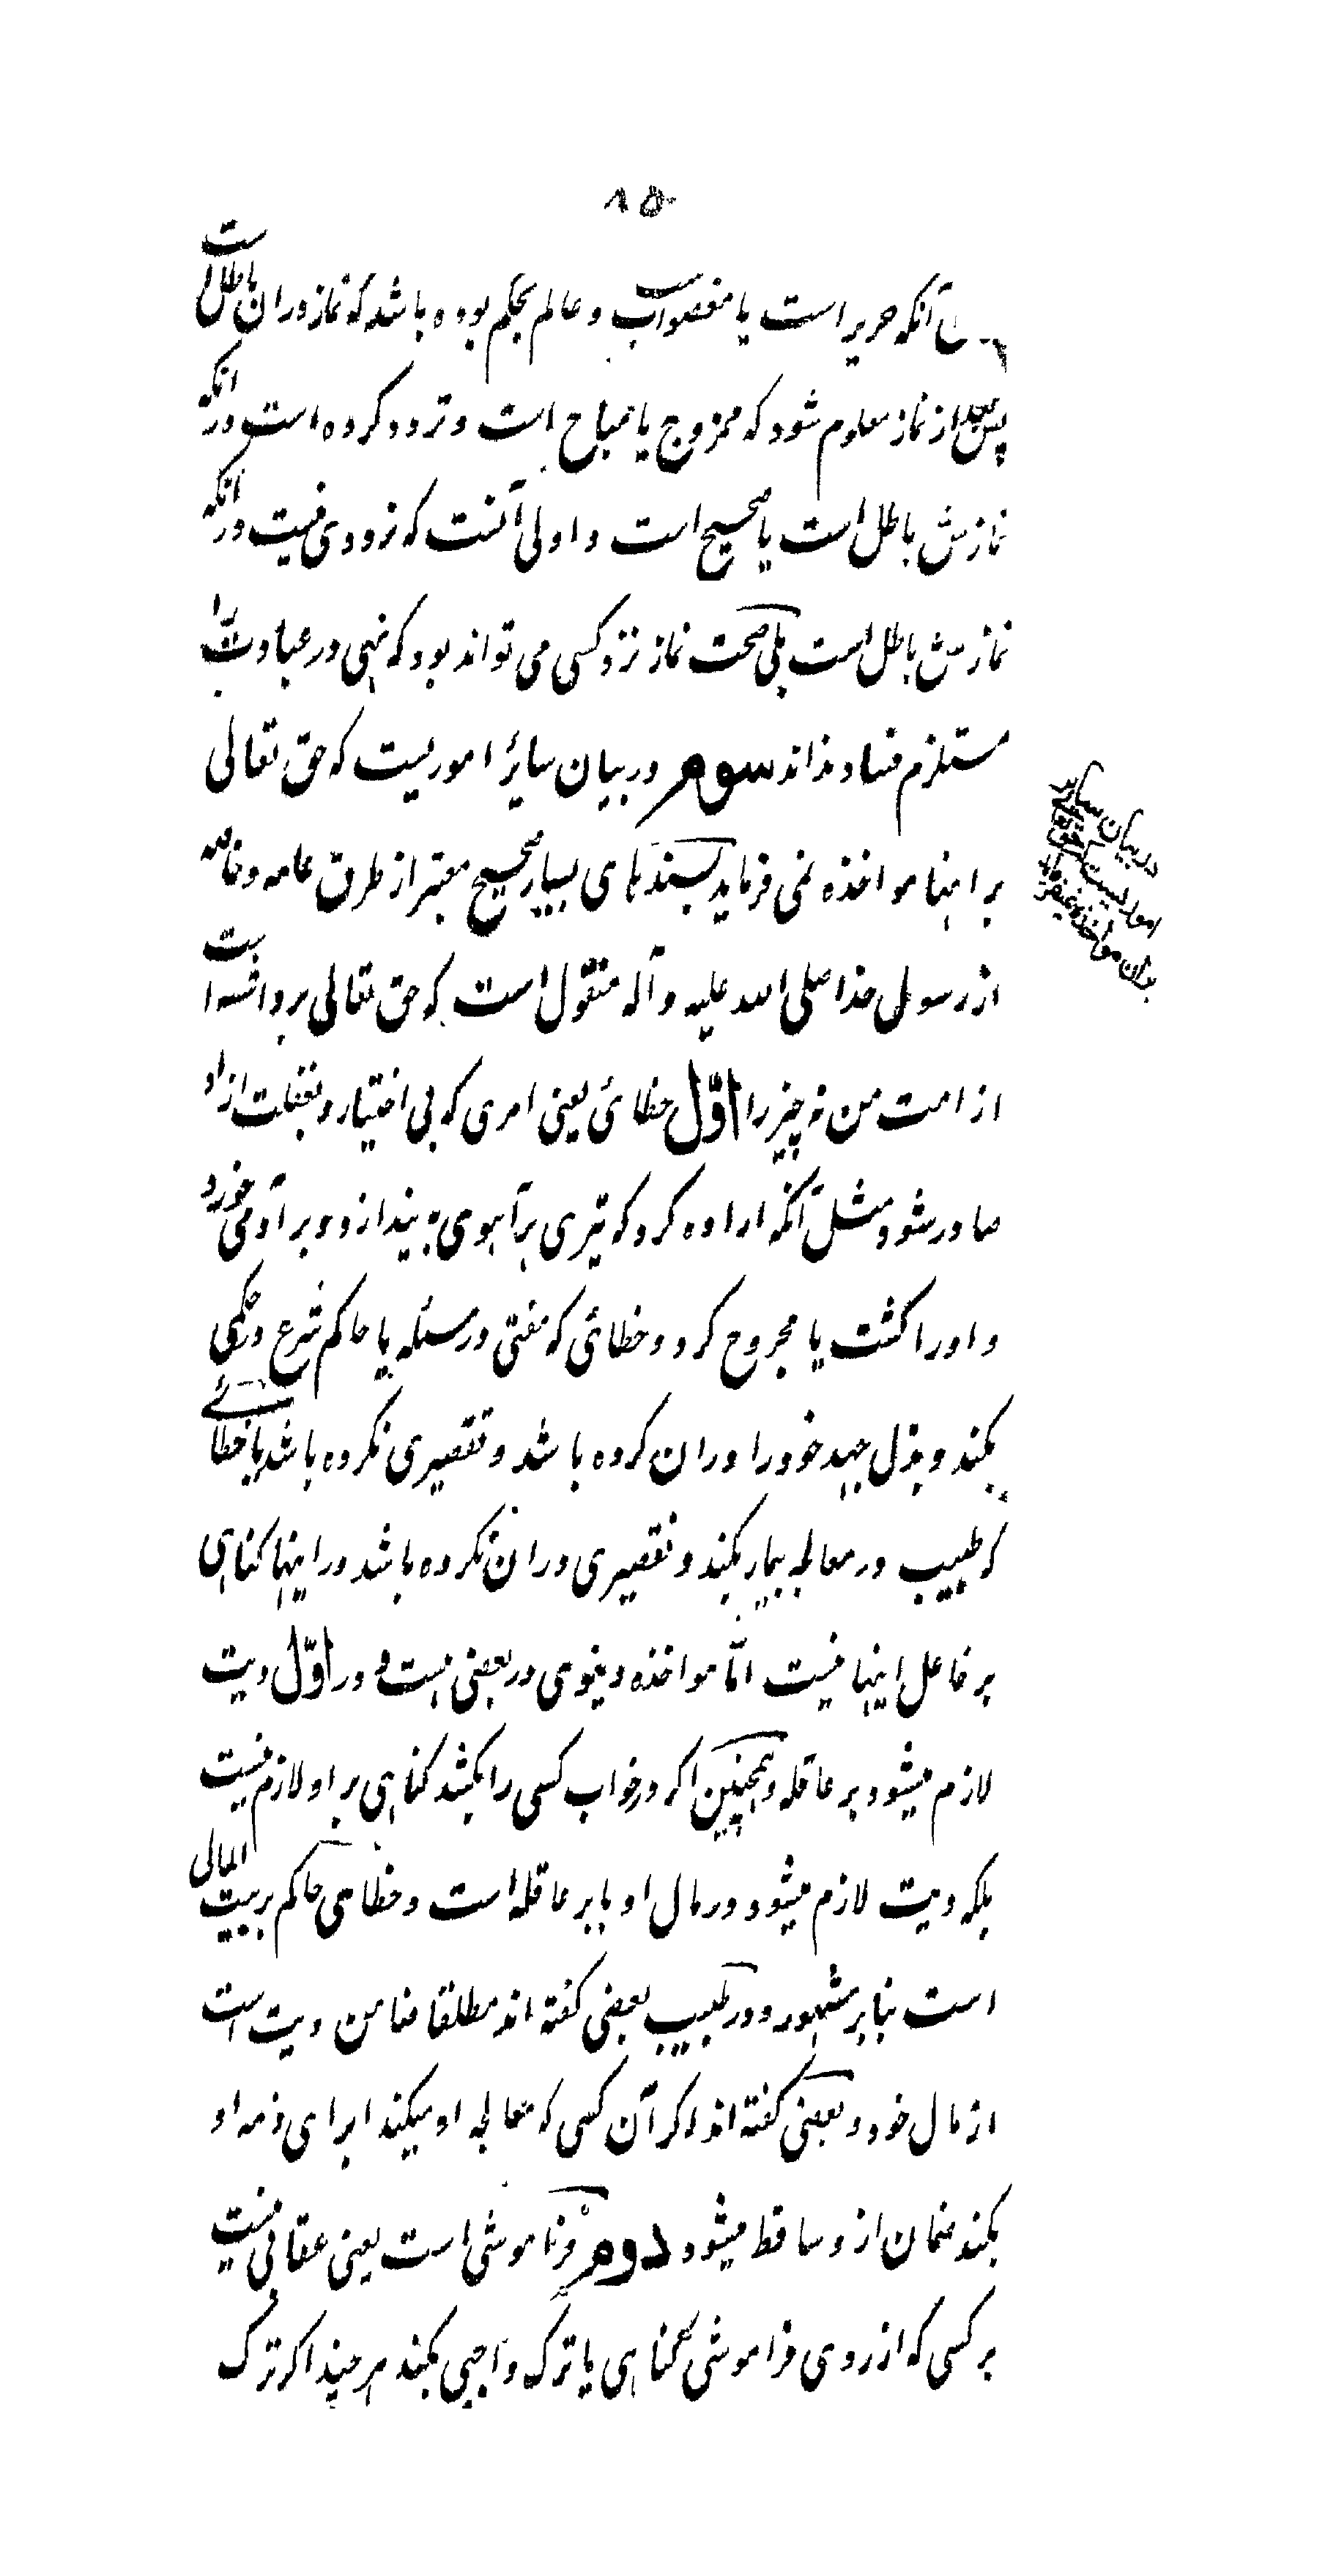 ۸۵
آنکه حریر است یا مغصوب و عالم بحکم بوده باشد که نماز در ان باطل است
پس بعد از نماز معلوم شود که ممزوج یا مباح است و تردد کرده است در انکه
نمازش باطل است یا صحیح است و اولی آنست که تردودی نیست در انکه
نمازش باطل است بلی صحت نماز نزد کسی می تواند بود که نهی در عبادت را
مستلزم فساد نداند سوم در بیان سایر اموریست که حق تعالی
بر اینها مواخذه نمی فرماید بسندهای بسیار صحیح معتبر از طرق عامه و خاصه
از رسول خدا صلی الله علیه و آله منقول است که حق تعالی برداشته است
از امت من نه چیز را اوّل خطائی یعنی امری که بی اختیار و بغفلت از او
صادر شود مثل آنکه اراده کرد که تیری بر آهوی بیندازد و بر آدمی خورد
و او را کشت یا مجروح کرد و خطائی که مفتی در مسئله یا حاکم شرع در حکمی
بکند و بذل جهد خود را در ان کرده باشد و تقصیری نکرده باشد یا خطائے
که طبیب در معالجه بیمار بکند و تقصیری در ان نکرده باشد در اینها کناهی
بر فاعل اینها نیست امّا مواخذه دنیوی در بعضی هست و در اوّل دیت
لازم میشود بر عاقله و همچنین اکر در خواب کسی را بکشد کناهی بر او لازم نیست
بلکه دیت لازم میشود در مال او یا بر عاقله است و خطاهی حاکم بر بیت المالی
است بنابر مشهور و در طبیب بعضی کفته اند مطلقا ضامن دیت است
از مال خود و بعضی کفته اند اکر آن کسی که معالجه او میکند ابرای ذمه او
بکند ضمان از و ساقط میشود دوم فراموشی است یعنی عقابی نیست
بر کسی که از روی فراموشی کناهی یا ترک واجبی بکند هر چند اکر ترک
در بیان سایر
امور یست که حق تعالی
بدان مواخذه نمیفرماید